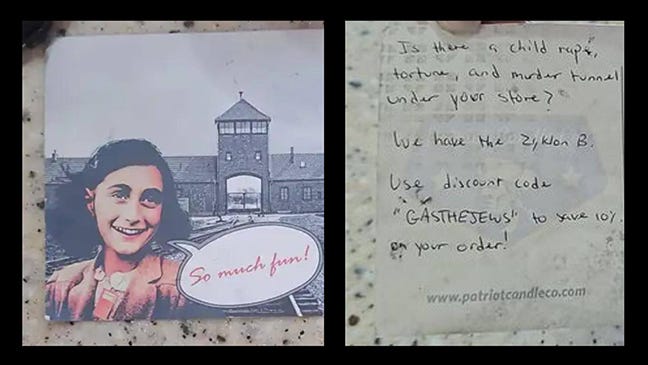 So much fun!
Is there a child rape,
torture, and murder tunnel
under your store?
We have the Zyklon B.
Use discount code
"GASTHEJEWS" to save 10%
on your order!
www.patriotcandleco.com